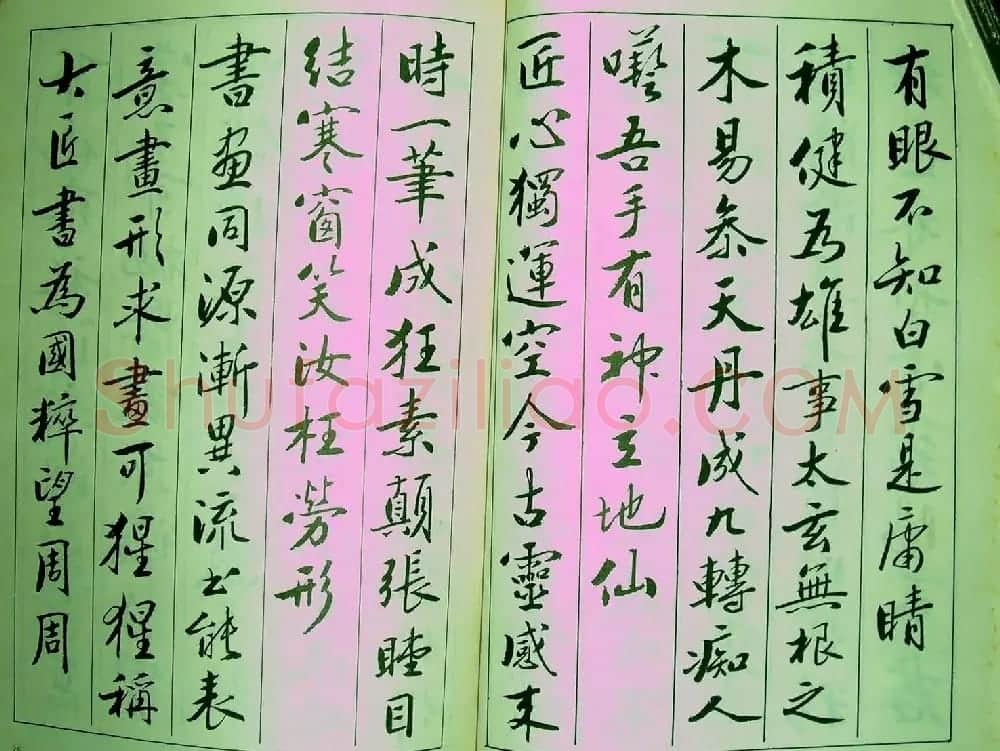 有眼不知白雪是庸睛
積健為雄事太玄無根之
木易參天丹成九轉癡人
囈吾手有神立地仙
匠心獨運空今古靈感來
時一筆成狂素顛張睦目
結寒窗笑汝枉勞形
書画同源漸異流书能表
意畫形求畫可猩猩稱
大匠書為國粹望周周
Shufaziliao.COM